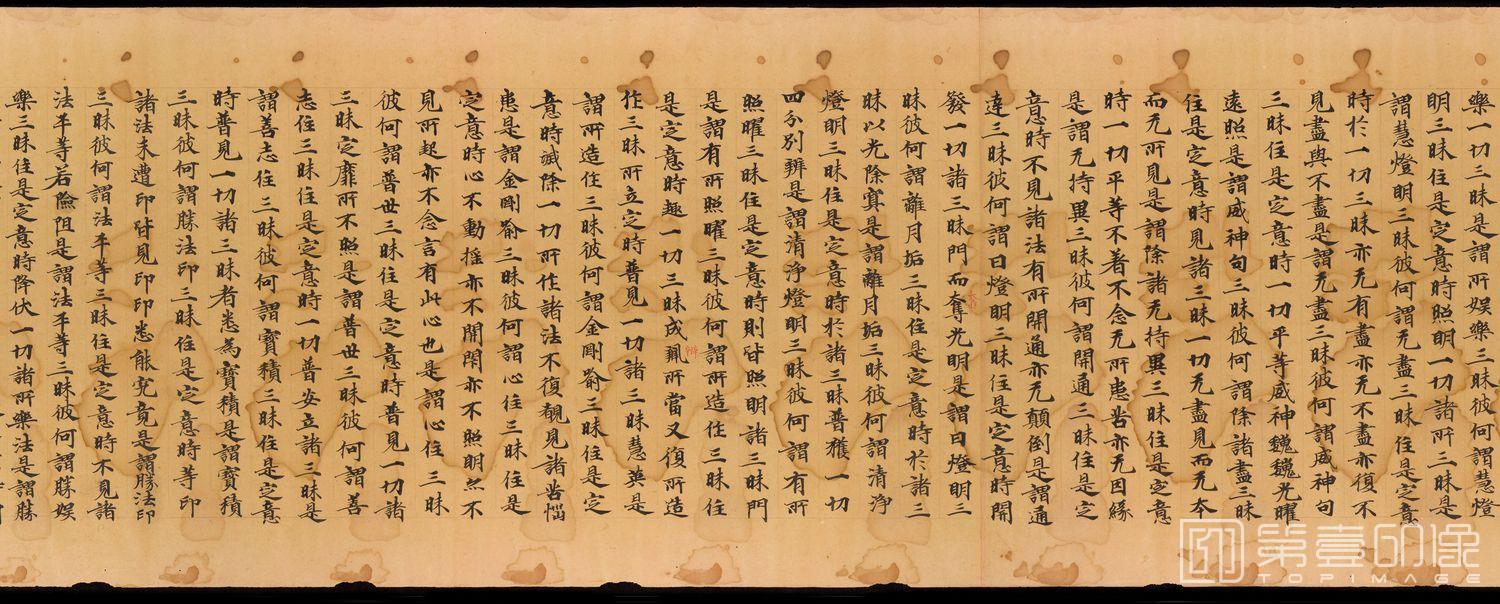 樂一切三昧是謂所娛樂三昧彼何謂慧燈
明三昧住是定意時照明一切諸所三昧是
謂慧燈明三昧彼何謂无盡三昧住是定意
時於一切三昧亦无有盡亦无不盡亦復不
見盡與不盡是謂无盡三昧彼何謂威神句
三昧住是定意時一切平等威神巍巍光曜
遠照是謂威神句三昧彼何謂除諸盡三昧
住是定意時見諸三昧一切无盡見而无本
而无所見是謂除諸无持異三昧住是定意
時一切平等不著不念无所患苦亦无因緣
是謂无持異三昧彼何謂開通三昧住是定
意時不見諸法有所開通亦无顛倒是謂通
達三昧彼何謂日燈明三昧住是定意時開
發一切諸三昧門而奪光明是謂日燈明三
昧彼何謂離月垢三昧住是定意時於諸三
昧以光除冥是謂離月垢三昧彼何謂清淨
燈明三昧住是定意時於諸三昧普獲一切
四分別辨是謂清淨燈明三昧彼何謂有所
照曜三昧住是定意時則皆照明諸三昧門
是謂有所照曜三昧彼何謂所造住三昧住
是定意時趣一切三昧成辦所當又復所造
住三昧所立定時普見一切諸三昧慧英是
謂所造住三昧彼何謂金剛喻三昧住是定
意時滅除一切所住諸法不復覩見諸苦惱
患是謂金剛喻三昧彼何謂心住三昧住是
定意時心不動搖亦不開閇亦不照明無不
見所起亦不念言有此心也是謂心住三昧
彼何謂普世三昧住是定意時普見一切諸
三昧定靡所不照是謂普世三昧彼何謂善
志住三昧住是定意時一切普安立諸三昧是
謂善志住三昧彼何謂寶積三昧住是定意
時普見一切諸三昧者悉為寶積是謂寶積
三昧彼何謂勝法印三昧住是定意時等印
諸法未遭印皆見印印悉能究竟是謂勝法印
三昧彼何謂法平等三昧住是定意時不見諸
法平等若險阻是謂法平等三昧彼何謂勝娛
樂三昧住是定意時降伏一切諸所樂法是謂勝
第壹印像
TOPIMAGE